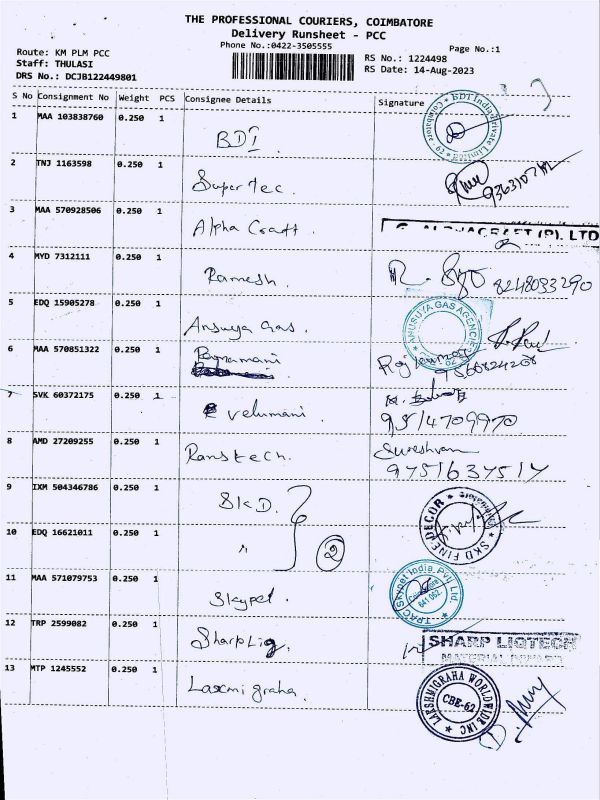 THE PROFESSIONAL COURIERS, COIMBATORE
Delivery Runsheet - PCC
Phone No.:0422-3505555
Page No.:1
Route: KM PLM PCC
Staff: THULASI
DRS No.: DCJB122449801
RS No.: 1224498
RS Date: 14-Aug-2023
S No Consignment No Weight PCS Consignee Details Signature
1 MAA 103838760 0.250 1 BDI BDT India Private Limited Coimbatore - 29
2 TNJ 1163598 0.250 1 SuperTec.
3 MAA 570928506 0.250 1 Alpha Craft. ALPHACRAFT (P). LTD
4 MYD 7312111 0.250 1 Ramesh. 8248033290
5 EDQ 15905278 0.250 1 Ansuya Gas. ANUSUYA GAS AGENCIES
6 MAA 570851322 0.250 1 Rajkumar
7 SVK 60372175 0.250 1 velumani. 9514709970
8 AMD 27209255 0.250 1 Ranstech. Sureshvan 9751637517
9 IXM 504346786 0.250 1 SKD. SKD FINE DECOR
10 EDQ 16621011 0.250 1 " 2
11 MAA 571079753 0.250 1 Skypet. TPAC Skypet India Pvt Ltd Coimbatore 641 062
12 TRP 2599082 0.250 1 SharpLig. SHARP LIGTECH
13 MTP 1245552 0.250 1 Laxmi graha. LAKSHMIGRAHA WORLDWIDE INC CBE-62